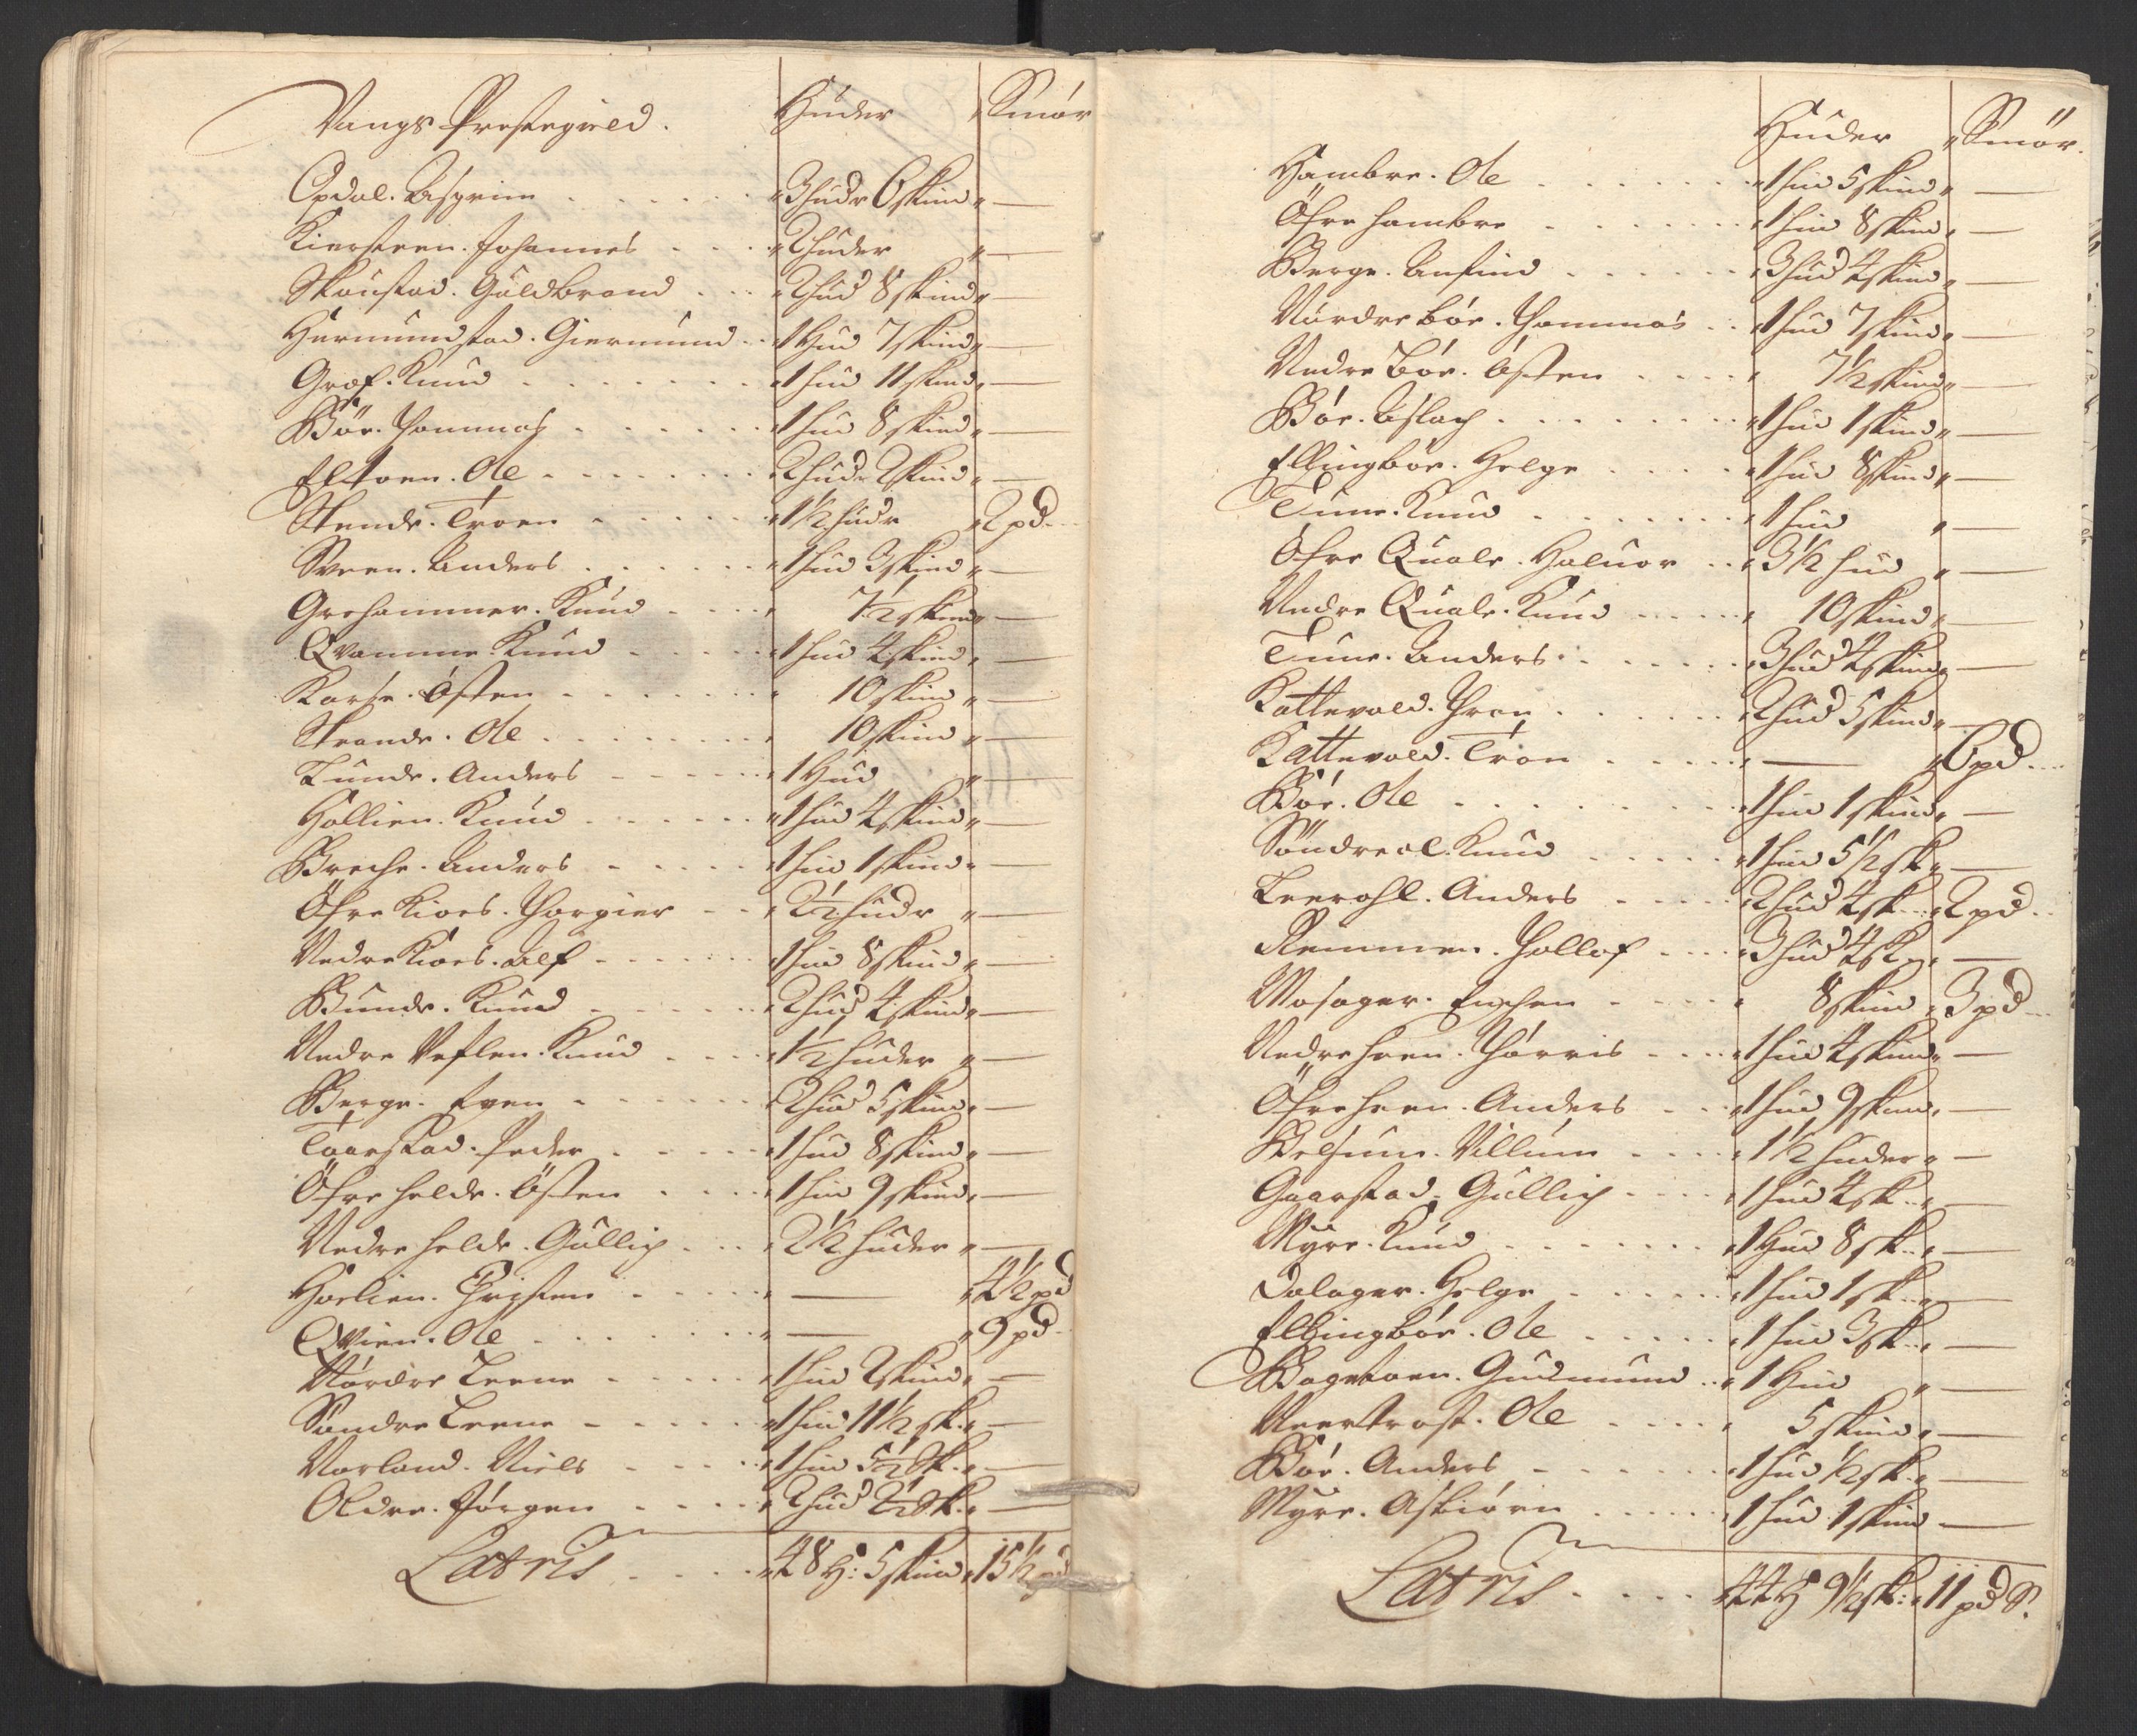 Vangs Prestegield. Huder Smör
Opdal. Asgrim . . . . . . 3 hudr 6 skind „ —
Kiersteen. Johannes . . . 2 huder „ —
Skoustad. Guldbrand . . . 2 hud 8 skind „ —
Hermundstad. Giermund . . 1 Hud 7 skind „ —
Grof. Knud . . . . . . . 1 hud 11 skind „ —
Böe. Thommas . . . . . . 1 hud 8 skind „ —
Eltoen. Ole . . . . . . 2 hudr 2 skind „ —
Stende. Troen . . . . . 1½ hudr „ 2 pd . .
Sveen. Anders . . . . . . 1 hud 3 skind „ —
Grohammer. Knud . . . . 7½ skind „ —
Qvamme. Knud . . . . . 1 hud 4 skind „ —
Karse. Östen . . . . . . 10 skind „ —
Strande. Ole . . . . . . 10 skind „ —
Lunde. Anders . . . . . 1 Hud „ —
Hollien. Knud . . . . . . 1 hud 4 skind „ —
Breche. Anders . . . . . 1 hud 1 skind „ —
Öfre Kioes. Thorgier . . . 2½ hudr „ —
Nedre Kioes. Alf . . . . . 1 hud 8 skind „ —
Bunde. Knud . . . . . . 2 hud 4 skind „ —
Nedre Veflen. Knud . . . 1½ huder „ —
Berge. Even . . . . . . 2 hud 5 skind „ —
Taarstad. Peder . . . . . 1 hud 8 skind „ —
Öfre helde. Östen . . . . 1 hud 9 skind „ —
Nedre helde. Gullig . . . 2½ huder „ —
Hoelien. Christen . . . . — „ 4½ pd
Qvien. Ole . . . . . . . — „ 9 pd
Nordre Leene . . . . . 1 hud 2 skind „ —
Söndre Leene . . . . . 1 hud 11½ sk. „ —
Norland. Niels . . . . . 1 hud 5½ sk. „ —
Oldre. Jörgen . . . . . 2 hud 2½ sk. „ —
Latris . . . . 48 H: 5 skind „ 15½ pd
Huder Smör.
Hambre. Ole . . . . . . 1 hud 5 skind „ —
Öfre hambre . . . . . . 1 hud 8 skind „ —
Berge. Anfind . . . . . . 3 hud 4 skind „ —
Nordre böe. Thommas . . 1 hud 7 skind „ —
Nedre Böe. Östen . . . . 7½ skind „ —
Böe. Aslach . . . . . . . 1 hud 1 skind „ —
Ellingböe. Helge . . . . 1 hud 8 skind „ —
Tune. Knud . . . . . . . 1 hud „ —
Öfre Quale. Haluor . . 3½ hud „ —
Nedre Quale. Knud . . . . 10 skind „ —
Tune. Anders . . . . . . 3 hud 4 skind „ —
Kattevold. Thron . . . . . 2 hud 5 skind „ —
Kattevold. Tron . . . . . — „ 6 pd . .
Böe. Ole . . . . . . . . 1 hud 1 skind „ —
Söndre ol. Knud . . . . . 1 hud 5½ sk „ —
Leerohl. Anders . . . . . 2 hud 4 sk . . „ 2 pd . .
Remmen. Thollof . . . . 3 hud 4 sk . . „ —
Mosager. Engben . . . . 8 skind „ 3 pd . .
Nedre heen. Thorris . . . . 1 hud 4 skind „ —
Öfre heen. Anders . . . 1 hud 9 skind „ —
Belsum. Villum . . . . . 1½ huder „ —
Gaarstad. Gullig . . . . 1 hud 4 sk . . „ —
Myre. Knud . . . . . . . 1 Hud 8 sk . . „ —
Dalager. Helge . . . . . 1 hud 1 sk . . „ —
Ellingböe. Ole . . . . . . 1 hud 3 sk . . „ —
Bagetoen. Gudmund . . . 1 Hud „ —
Neertrost. Ole . . . . . 5 skind „ —
Böe. Anders . . . . . . . 1 hud ½ sk „ —
Myre. Asbiörn . . . . . 1 hud 1 skind —
Latris . . . . 44 H 9½ sk: „ 11 pd S.